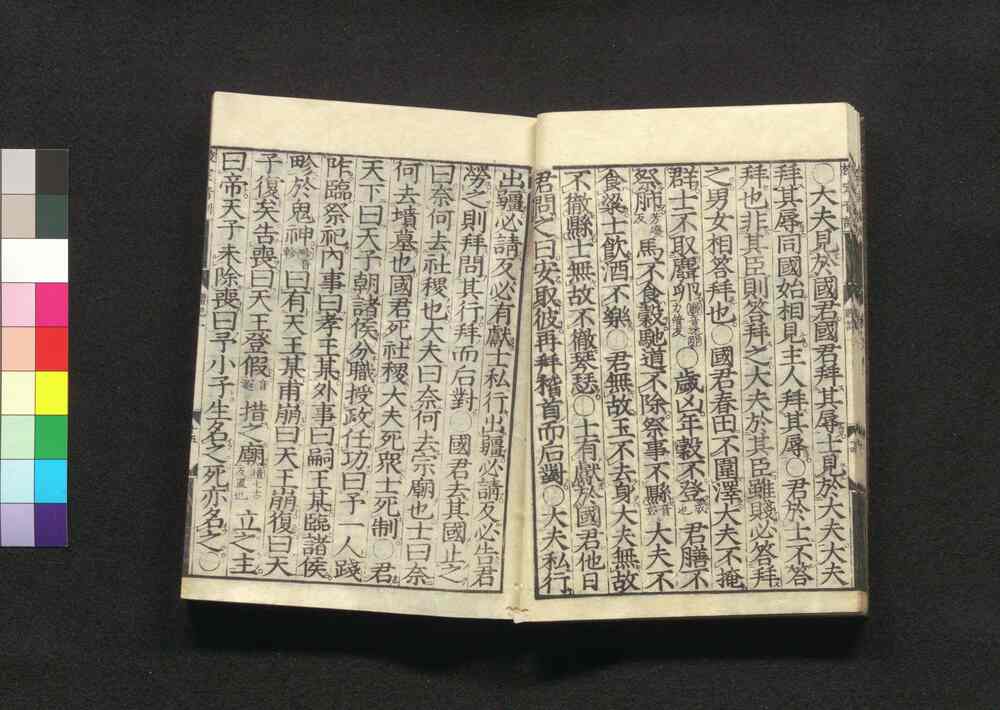 ○大夫見於國君國君拜其辱士見於大夫大夫
拜其辱同國始相見主人拜其辱○君於士不答
拜也非其臣則答拜之大夫於其臣雖賤必答拜
之男女相答拜也○國君春田不圍澤大夫不掩
群士不取麛卵○歲凶年穀不登君膳不
祭肺馬不食穀馳道不除祭事不縣大夫不
食粱士飲酒不樂○君無故玉不去身大夫無故
不徹縣士無故不徹琴瑟○士有獻於國君他日
君問之曰安取彼再拜稽首而后對○大夫私行
出疆必請反必有獻士私行出疆必請反必告君
勞之則拜問其行拜而后對○國君去其國止之
曰奈何去社稷也大夫曰奈何去宗廟也士曰奈
何去墳墓也國君死社稷大夫死眾士死制○君
天下曰天子朝諸侯分職授政任功曰予一人踐
阼臨祭祀內事曰孝王某外事曰嗣王某臨諸侯
畛於鬼神曰有天王某甫崩曰天王崩復曰天
子復矣告喪曰天王登假措之廟立之主
曰帝天子未除喪曰予小子生名之死亦名之○